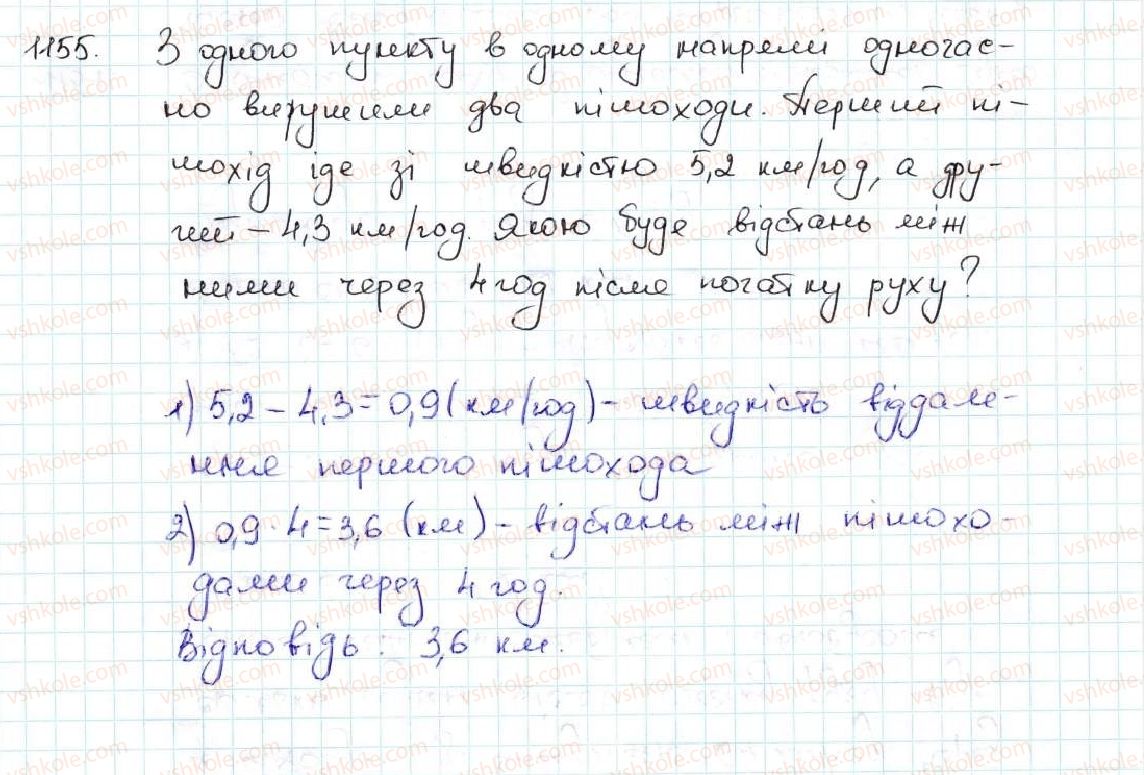 1155. З одного пункту в одному напрямі одночас-
но вирушили два пішоходи. Перший пі-
шохід іде зі швидкістю 5,2 км/год, а дру-
гий – 4,3 км/год. Якою буде відстань між
ними через 4 год після початку руху?
1) 5,2 – 4,3 = 0,9 (км/год) – швидкість віддале-
ння першого пішохода
2) 0,9 · 4 = 3,6 (км) – відстань між пішохо-
дами через 4 год.
Відповідь: 3,6 км.